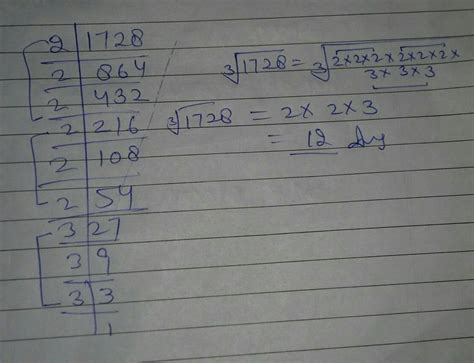 2 | 1728
2 | 864
2 | 432
2 | 216
2 | 108
2 | 54
3 | 27
3 | 9
3 | 3
| 1
3√1728 = 3√2×2×2×2×2×2×
3×3×3
3√1728 = 2×2×3
= 12